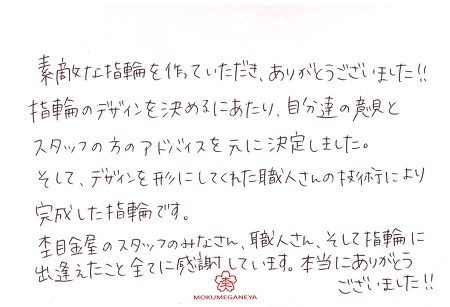 素敵な指輪を作っていただき、ありがとうございました!!
指輪のデザインを決めるにあたり、自分達の意見と
スタッフの方のアドバイスを元に決定しました。
そして、デザインを形にしてくれた職人さんの技術により
完成した指輪です。
杢目金屋のスタッフのみなさん、職人さん、そして指輪に
出逢えたこと全てに感謝しています。本当にありがとう
ございました!!
MOKUMEGANEYA